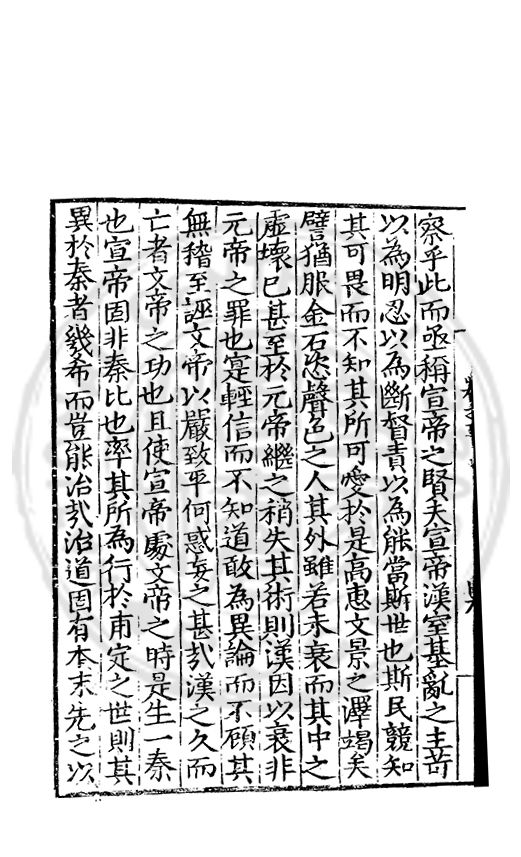 察乎此而亟稱宣帝之賢夫宣帝漢室基亂之主苛
以為明忍以為斷督責以為能當斯世也斯民競知
其可畏而不知其所可愛於是高惠文景之澤竭矣
譬猶服金石恣聲色之人其外雖若未衰而其中之
虛壞已甚至於元帝繼之稍失其術則漢因以衰非
元帝之罪也寔輕信而不知道敢為異論而不顧其
無稽至誣文帝以嚴致平何惑妄之甚㢤漢之久而
亡者文帝之功也且使宣帝處文帝之時是生一秦
也宣帝固非秦比也率其所為行於甫定之世則其
異於秦者幾希而豈能治㢤治道固有本末先之以